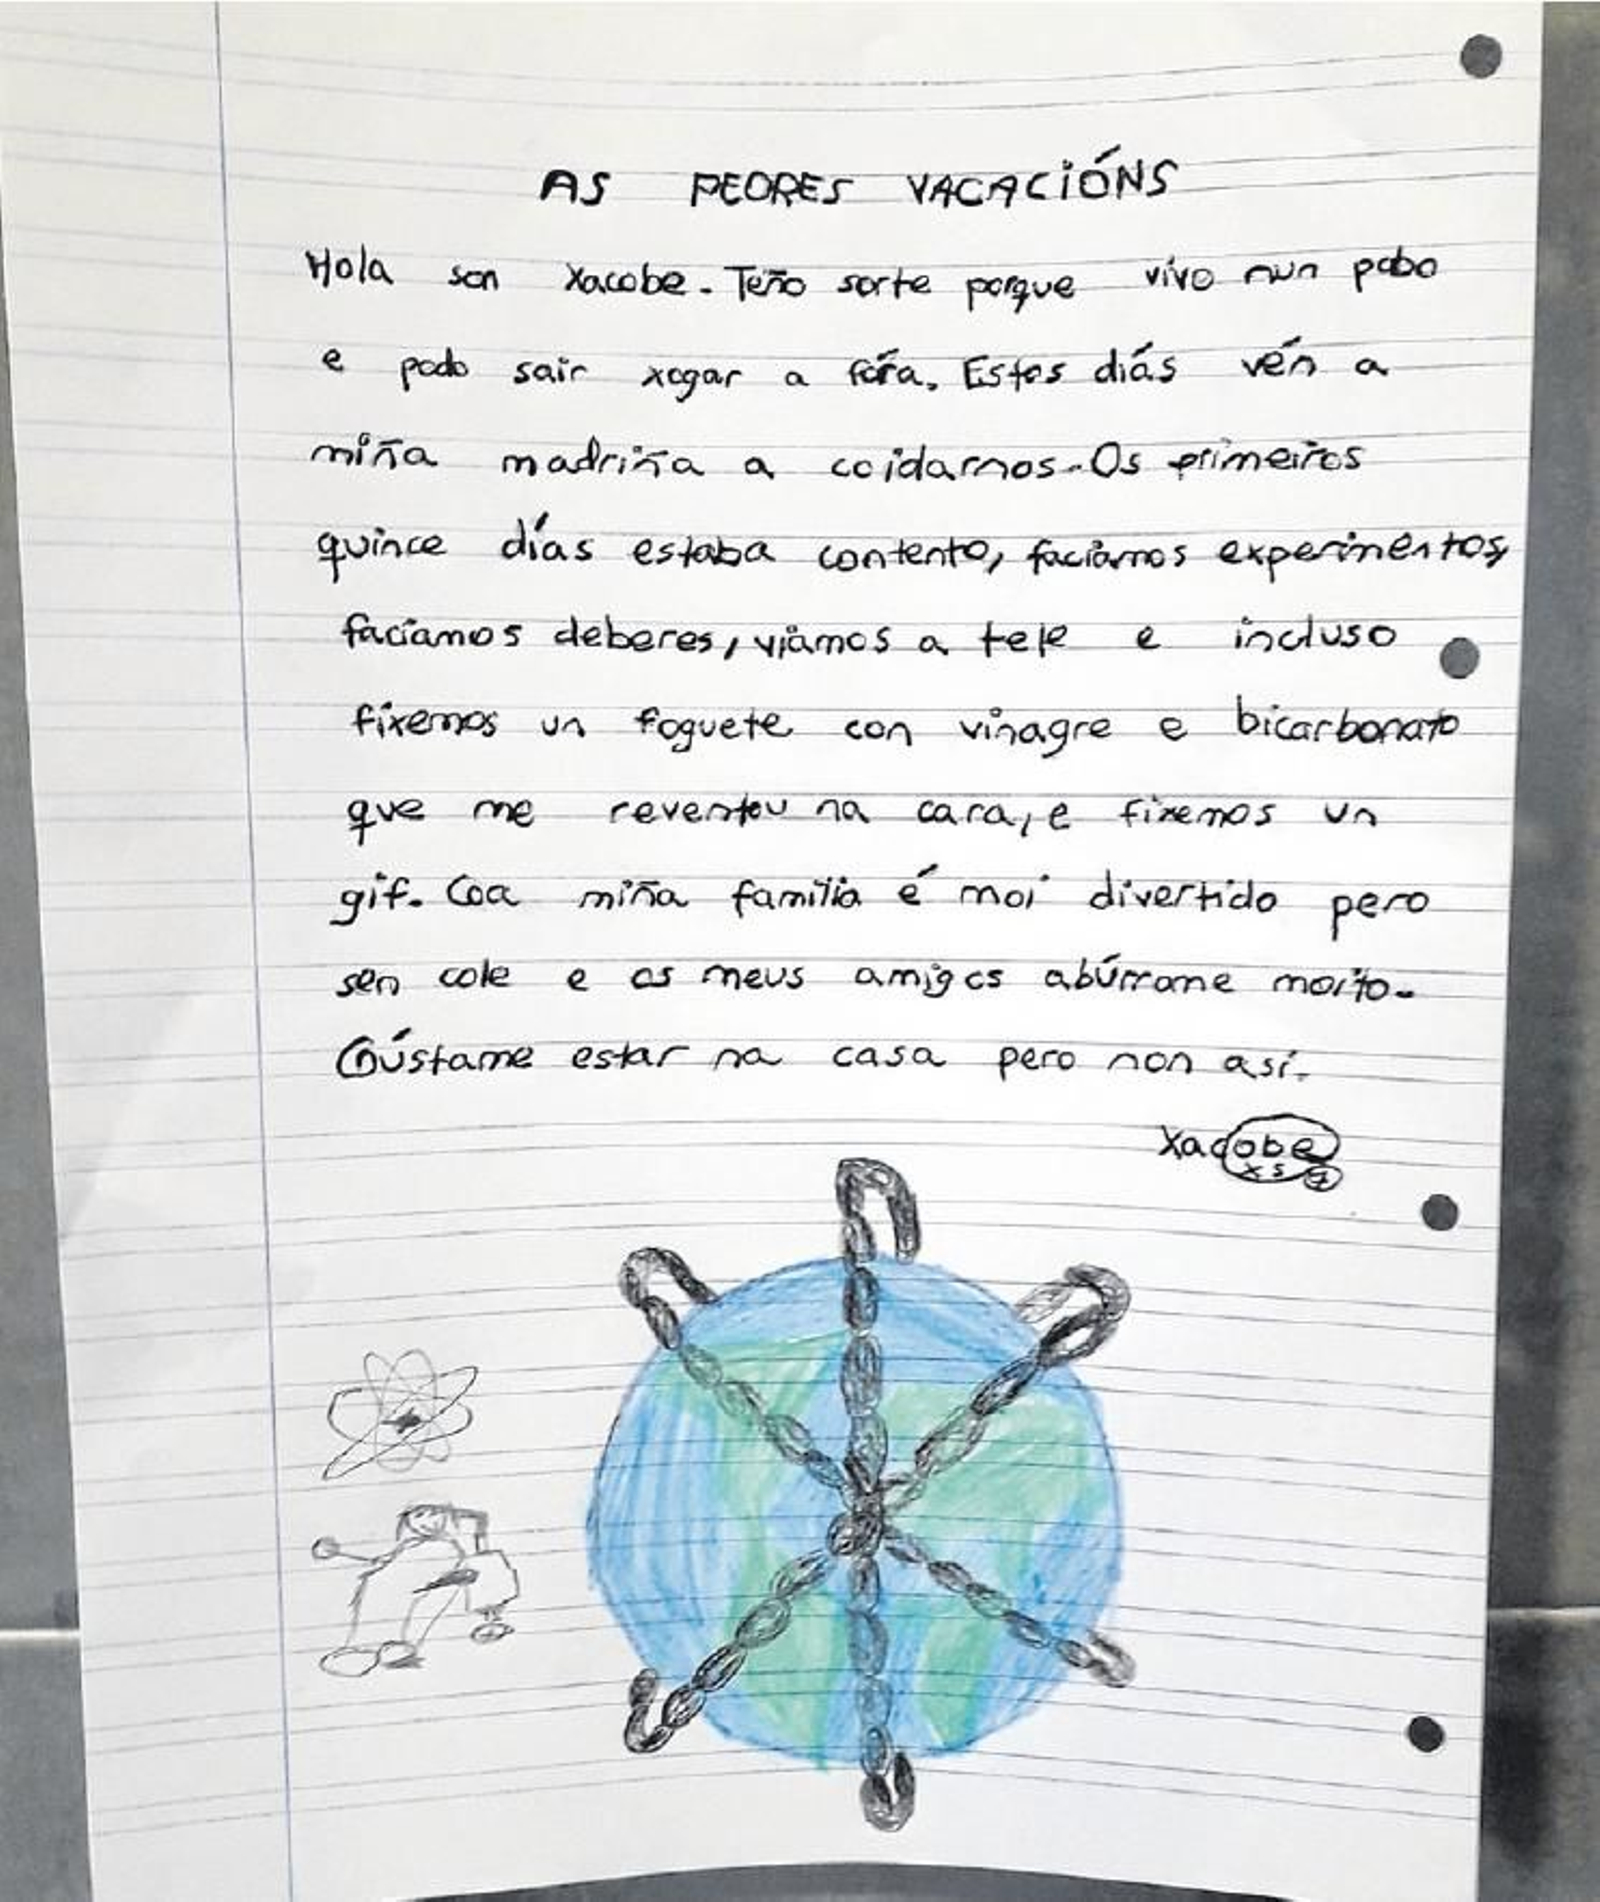 AS PEORES VACACIÓNS
Hola son Xacobe. Teño sorte porque vivo nun pobo
e podo sair xogar a fóra. Estes diás vén a
miña madriña a coidarnos. Os primeiros
quince días estaba contento, faciamos experimentos,
faciamos deberes, viamos a tele e incluso
fixemos un foguete con vinagre e bicarbonato
que me reventou na cara, e fixemos un
gif. Coa miña familia é moi divertido pero
sen cole e os meus amigos abúrrome moito.
Gústame estar na casa pero non así.
Xacobe
xs